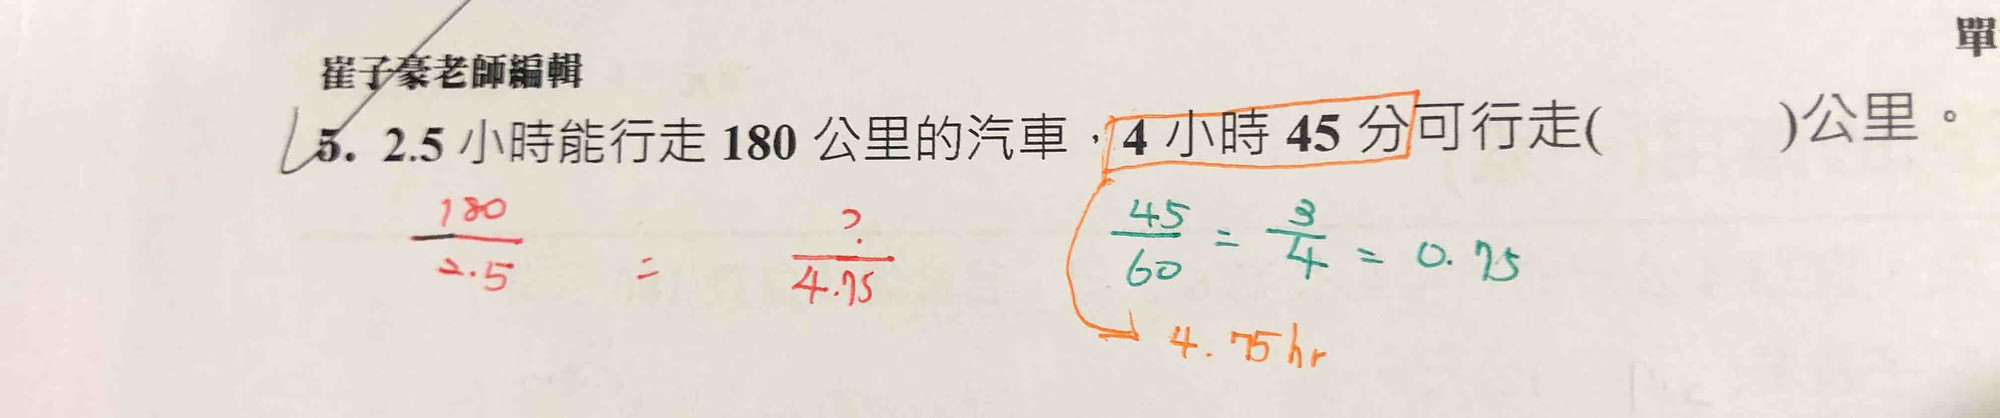 單
崔子豪老師編輯
5. 2.5 小時能行走 180 公里的汽車，4 小時 45 分可行走( )公里。
180/2.5 = ?/4.75
45/60 = 3/4 = 0.75
→ 4.75hr